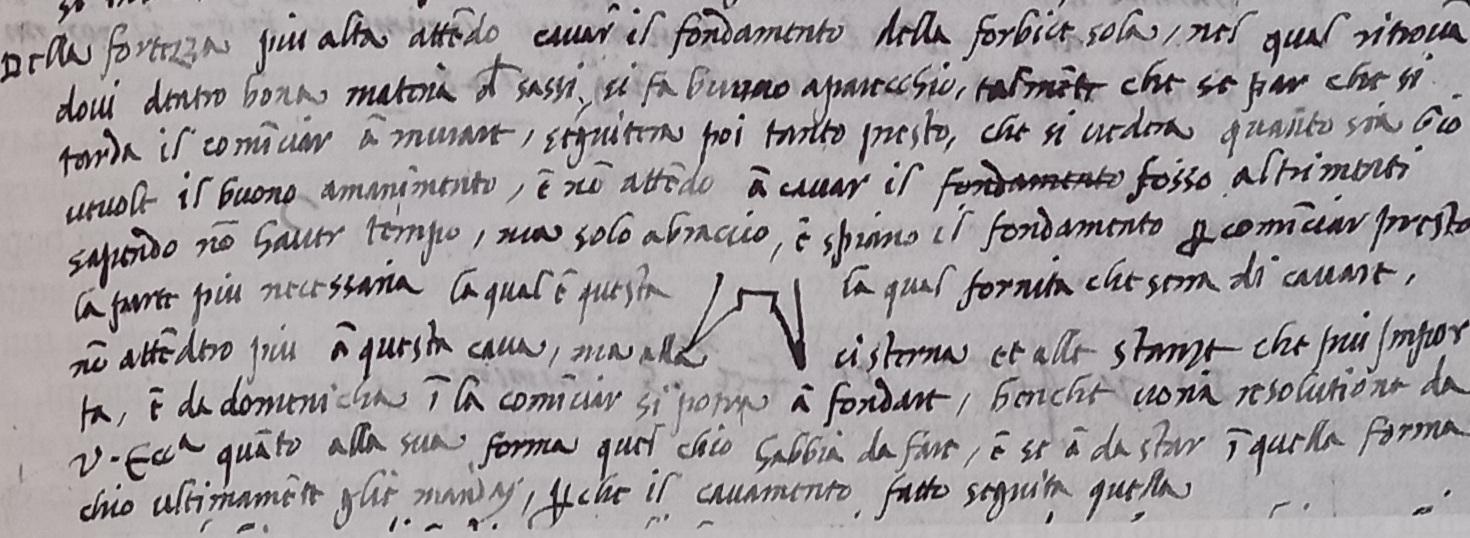 Della fortezza piu alta attēdo cauar il fondamento della forbice sola, nel qual ritroua
doui dentro bona materia d sassi, si fa buono aparecchio, talmēte che se par che si
tarda il comīciar ā murare, seguitera poi tanto presto, che si uedera quanto sia gio
ueuole il buono amanimento, ē nō attēdo ā cauar il fondamento fosso altrimenti
sapendo nō hauer tempo, ma solo abraccio, ē spiano il fondamento p comīciar presto
la parte piu necessaria la qual ē questa la qual fornita che sera di cauare,
nō attēdero piu ā questa caua, ma alla cisterna et alle stanze che piu impor
ta, ē da domenicha ī la comīciar si potra ā fondare, benche uoria resolutione da
V. Ecca quāto alla sua forma quel chio habbia da fare, ē se ā da star ī quella forma
chio ultimamēte glie mandaj, pche il cauamento fatto seguita quella